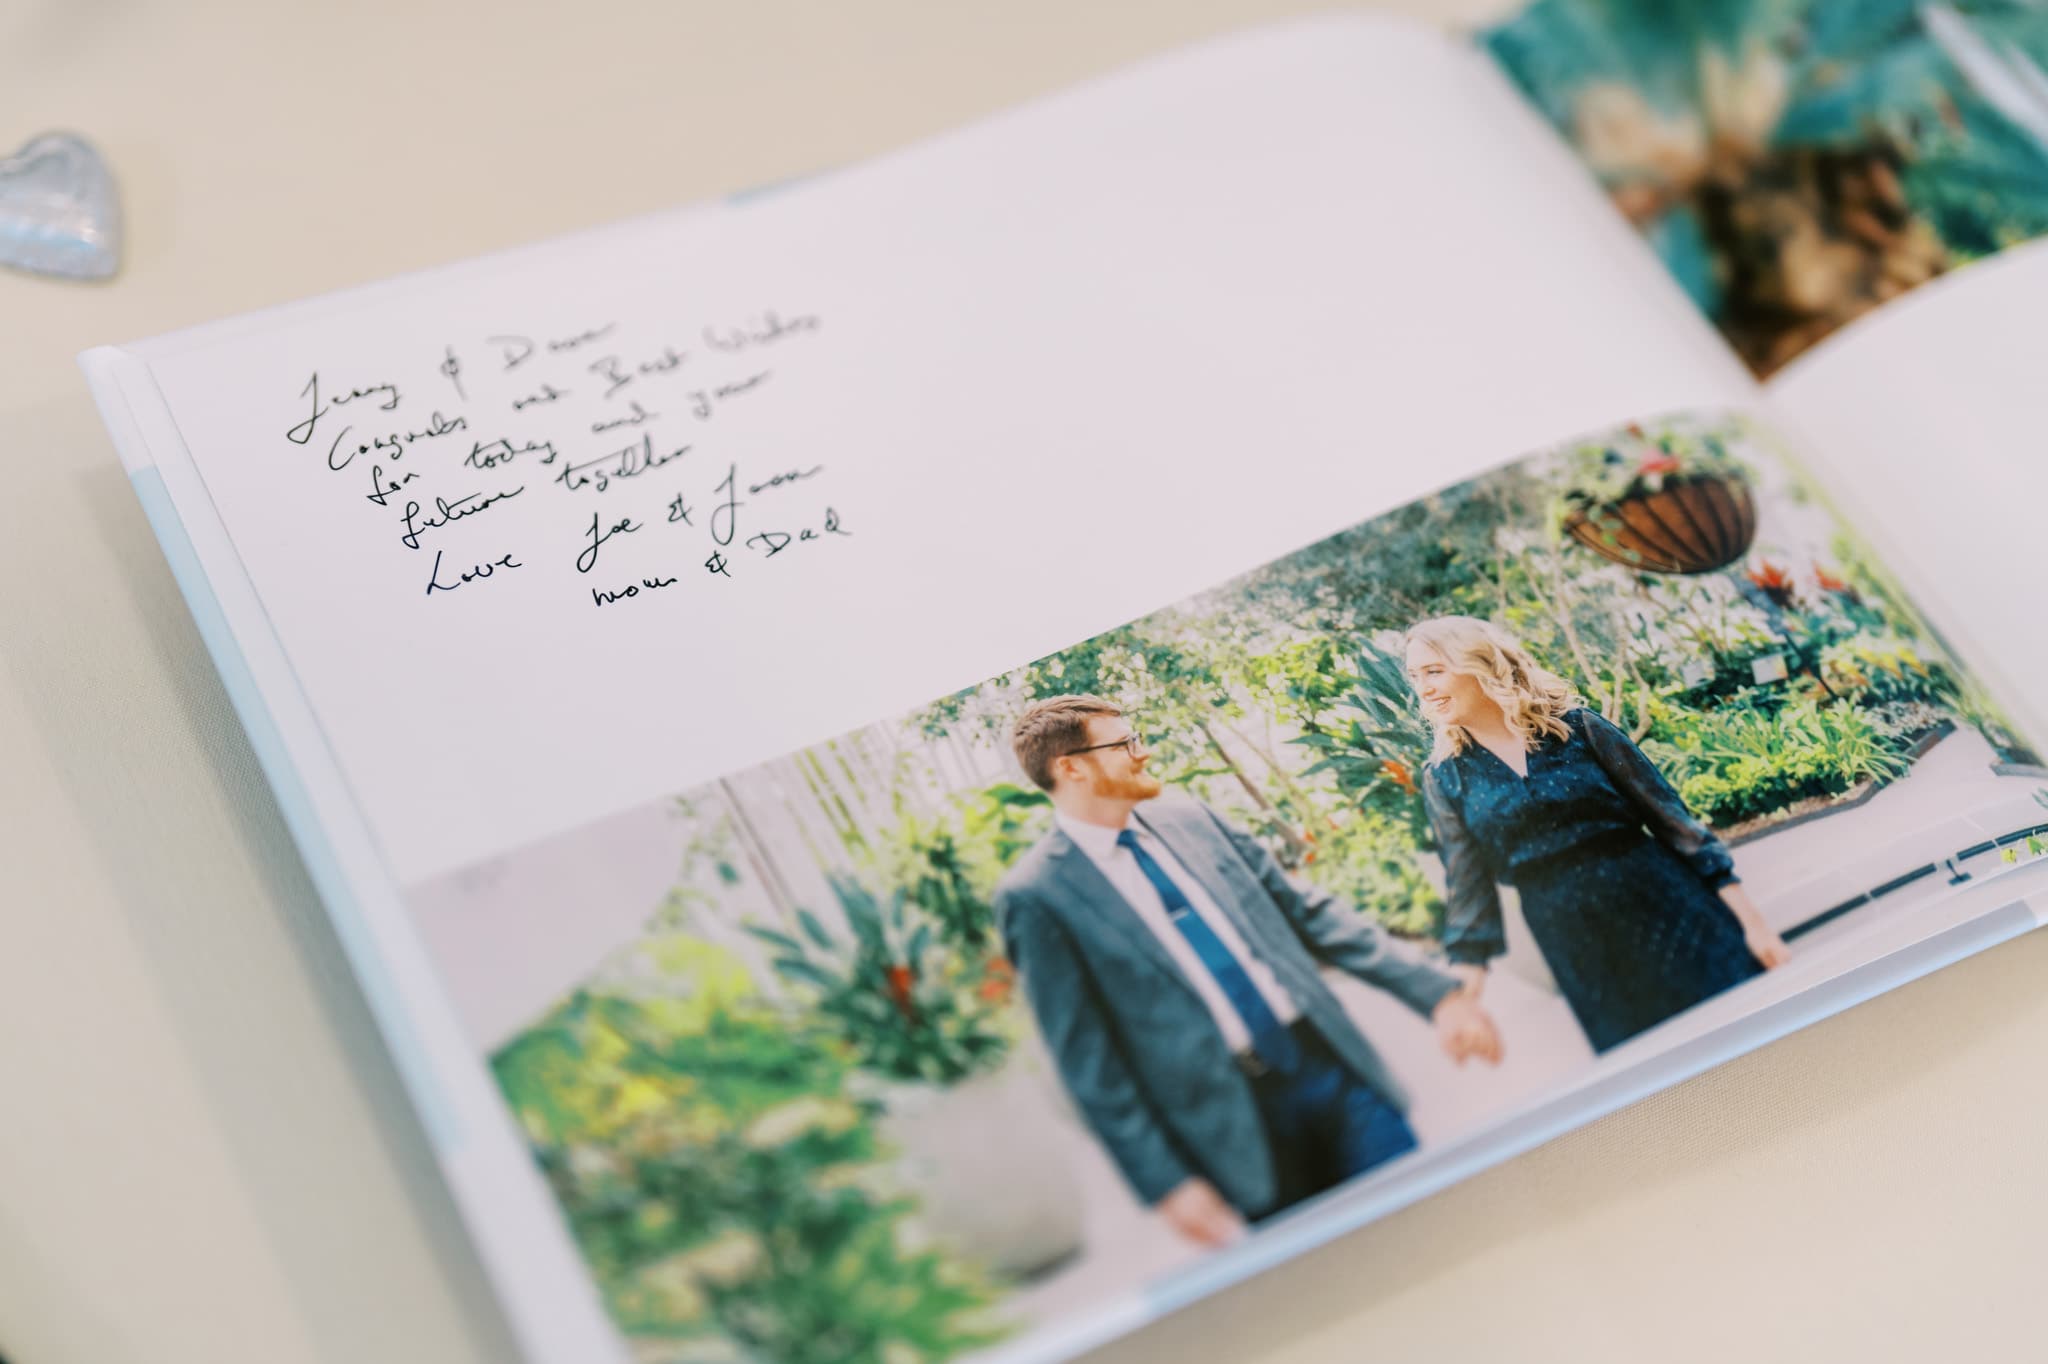 Jenny & Dave
Congrats and Best Wishes
for today and your
future together
Love Joe & Joan
Mom & Dad